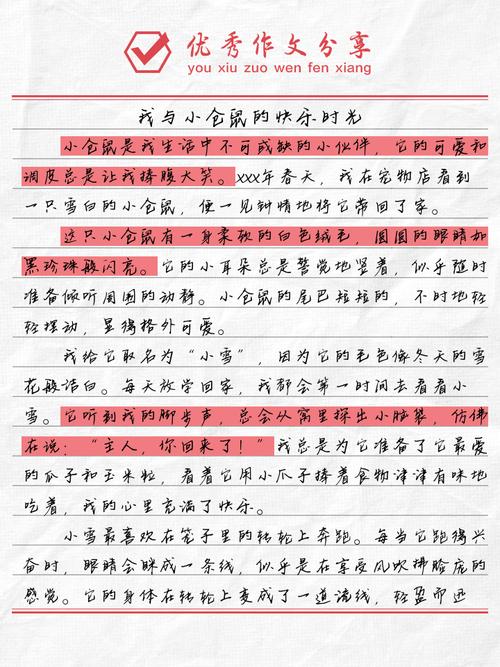 优秀作文分享
you xiu zuo wen fen xiang
我与小仓鼠的快乐时光
小仓鼠是我生活中不可或缺的小伙伴，它的可爱和
调皮总是让我捧腹大笑。xxx年春天，我在宠物店看到
一只雪白的小仓鼠，便一见钟情地将它带回了家。
这只小仓鼠有一身柔软的白色绒毛，圆圆的眼睛如
黑珍珠般闪亮。它的小耳朵总是警觉地竖着，似乎随时
准备倾听周围的动静。小仓鼠的尾巴短短的，不时地轻
轻摆动，显得格外可爱。
我给它取名为“小雪”，因为它的毛色像冬天的雪
花般洁白。每天放学回家，我都会第一时间去看看小
雪。它听到我的脚步声，总会从窝里探出小脑袋，仿佛
在说：“主人，你回来了！”我总是为它准备了它最爱
的瓜子和玉米粒，看着它用小爪子捧着食物津津有味地
吃着，我的心里充满了快乐。
小雪最喜欢在笼子里的转轮上奔跑。每当它跑得兴
奋时，眼睛会眯成一条线，似乎是在享受风吹拂脸庞的
感觉。它的身体在转轮上变成了一道流线，轻盈而迅